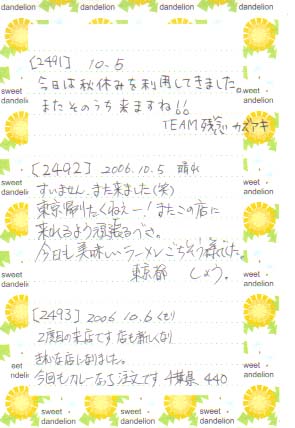 dandelion dandelion dandelion dandelion
[2491] 10.5
今日は秋休みを利用してきました。
またそのうち来ますね!!
TEAM残念 カズアキ
[2492] 2006.10.5 晴れ
すいません、また来ました(笑)
東京帰りたくねえー!またこの店に
来れるよう頑張るべさ。
今日も美味しいラーメンごちそう様でした。
東京都 しょう。
[2493] 2006 10.6(くもり)
2度目の来店です 店も新しくなり
きれいな店になりました。
今回もカレーなら注文です 千葉県 440
sweet dandelion
sweet dandelion
sweet dandelion
sweet dandelion
sweet dandelion
sweet dandelion
sweet dandelion
sweet dandelion